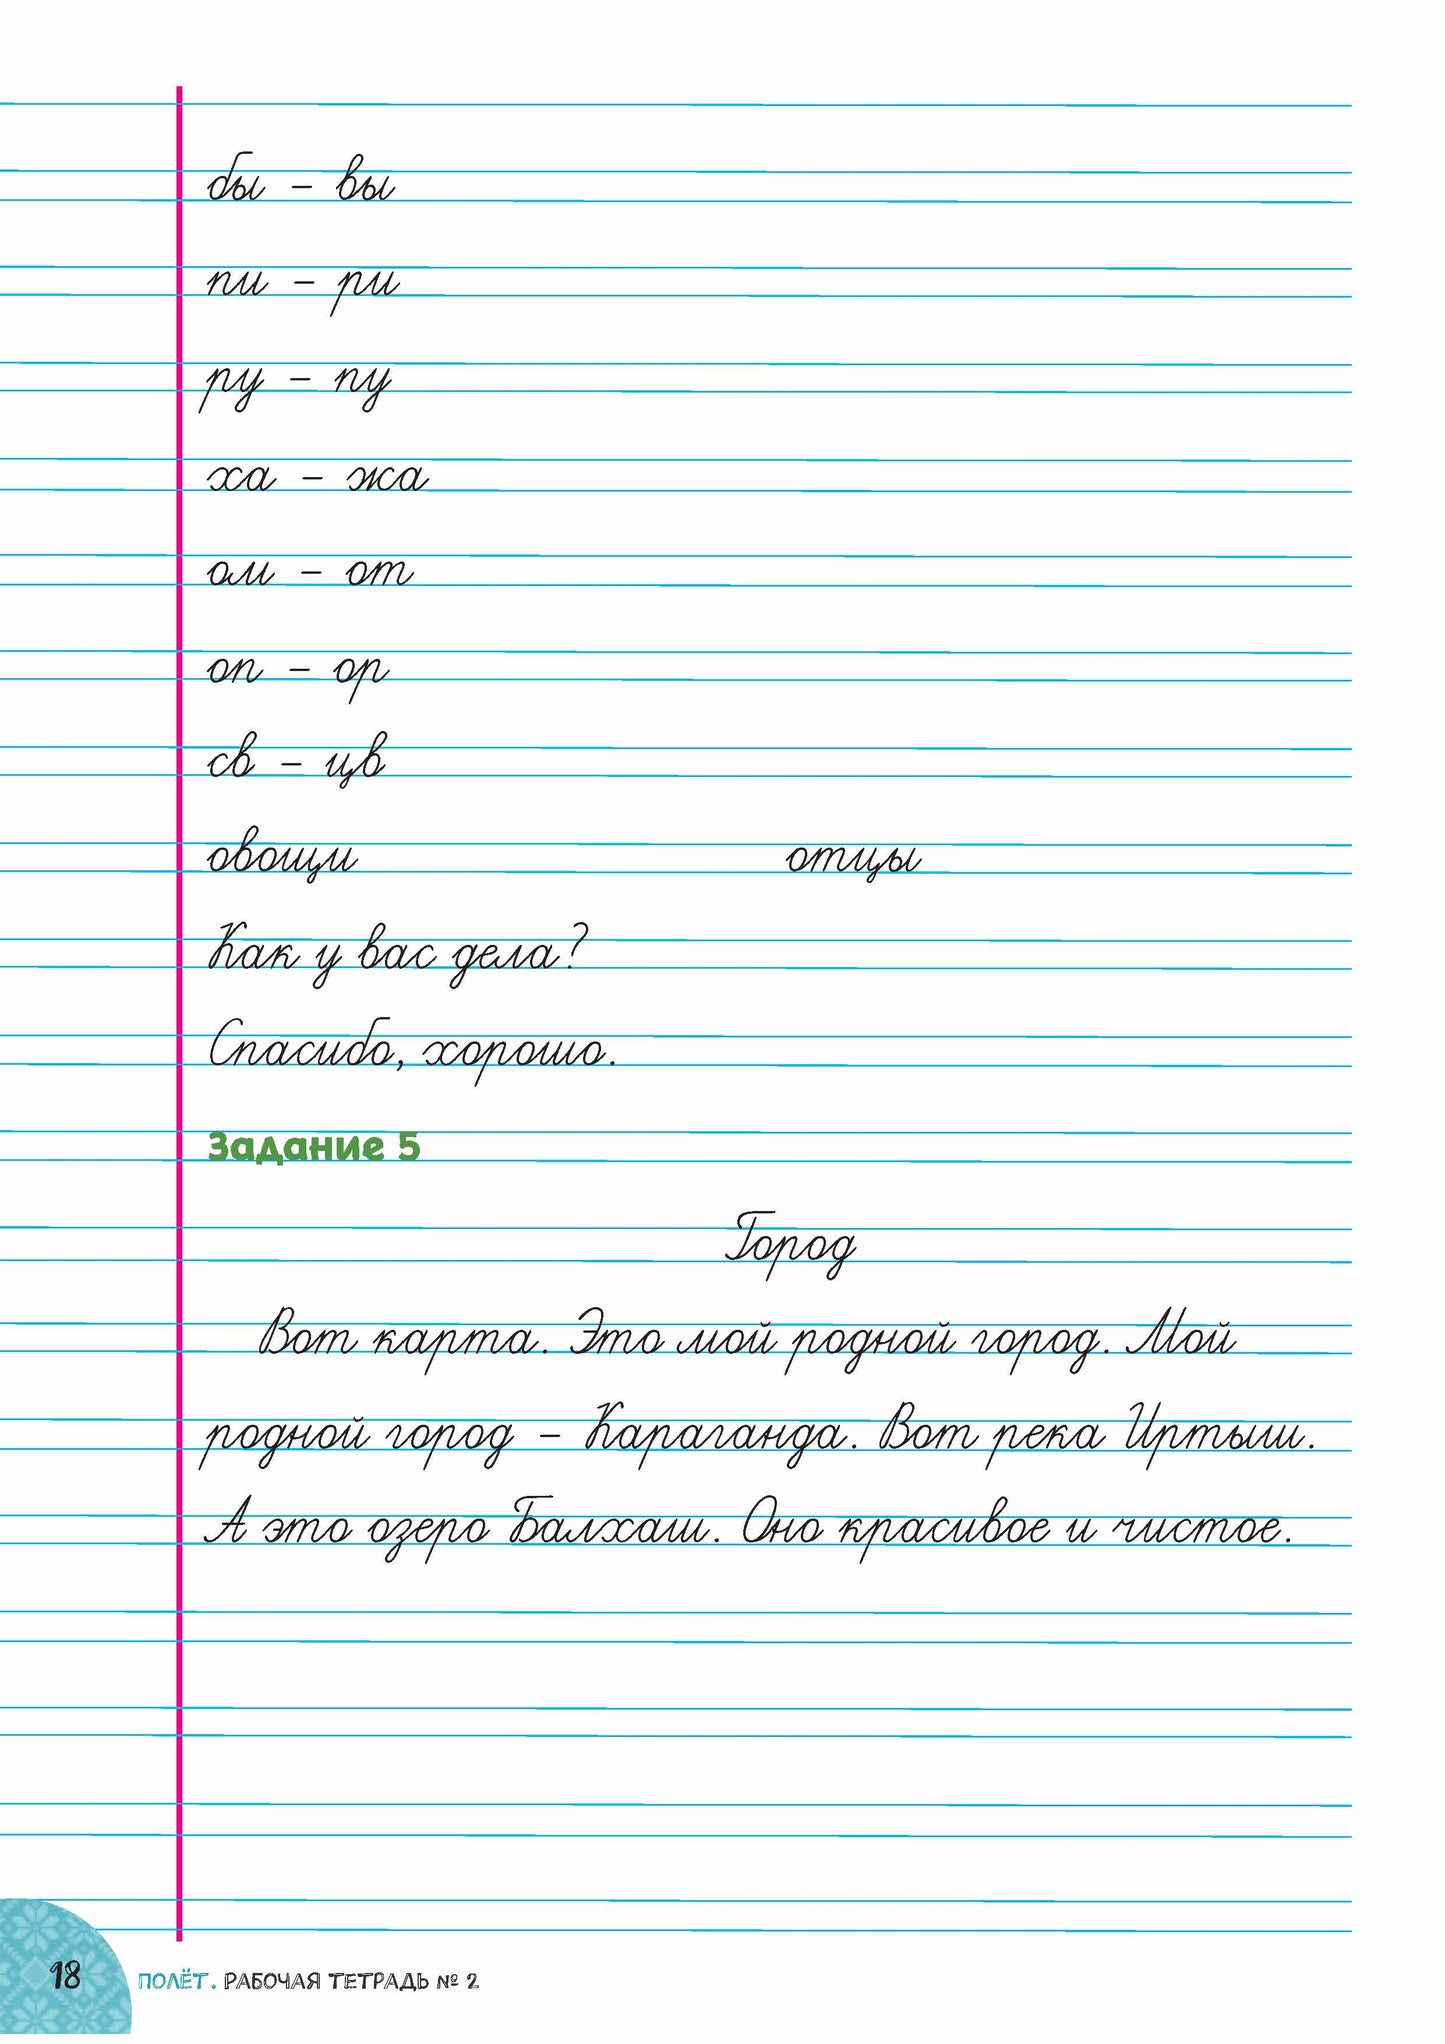 бы – вы
пи – ри
ру – пу
ха – жа
ом – от
оп – ор
св – цв
овощи отцы
Как у вас дела?
Спасибо, хорошо.
Задание 5
Город
Вот карта. Это мой родной город. Мой
родной город – Караганда. Вот река Иртыш.
А это озеро Балхаш. Оно красивое и чистое.
18 ПОЛЁТ. РАБОЧАЯ ТЕТРАДЬ № 2